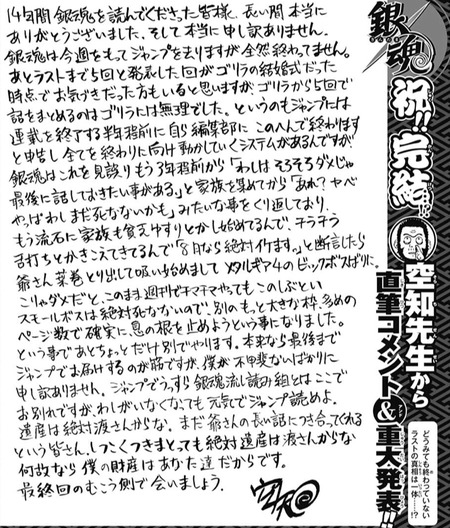 銀魂
祝!!完結!?
空知先生から
直筆コメント&重大発表!!
どうみても終わっていない
ラストの真相は一体……!?
14年間銀魂を読んでくださった皆様、長い間本当に
ありがとうございました、そして本当に申し訳ありません。
銀魂は今週をもってジャンプを去りますが全然終わってません。
あとラストまで5回と発表した回がゴリラの結婚式だった
時点でお気付きだった方もいると思いますが、ゴリラから5回で
話をまとめるのはゴリラには無理でした。というのもジャンプには
連載を終了する半年程前に自ら編集部に「このへんで終わります」
と申告し全てを終わりに向け動かしていくシステムがあるんですが
銀魂はこれを見誤りもう3年程前から「わしはそろそろダメじゃ
最後に話しておきたい事がある。」と家族を集めてから「あれ?ヤベ
やっぱわしまだ死なないかも」みたいな事をくり返しており、
もう流石に家族も貧乏ゆすりとかし始めてるんで、チラチラ
舌打ちとかきこえてきてるんで「8月なら絶対イけます。」と断言したら
爺さん葉巻とり出して吸い始めまして メタルギア4のビッグボスばりに。
こりゃダメだと、このまま週刊でチマチマやってもこのしぶとい
スモールボスは絶対死なないので、別のもっと大きな枠、多めの
ページ数で確実に息の根を止めようという事になりました。
という事であとちょっとだけ別でやります。本来なら最後まで
ジャンプでお届けするのが筋ですが、僕が不甲斐ないばかりに
申し訳ありません。ジャンプどうっすら銀魂流し読み組とはここで
お別れですが、わしがいなくなっても元気でジャンプ読めよ。
遺産は絶対渡さんからな。まだ爺さんの長い話につき合ってくれる
という皆さん、しつこくつきまとっても絶対遺産は渡さんからな
何故なら僕の財産はあなた達だからです。
最終回のむこう側で会いましょう。
空知